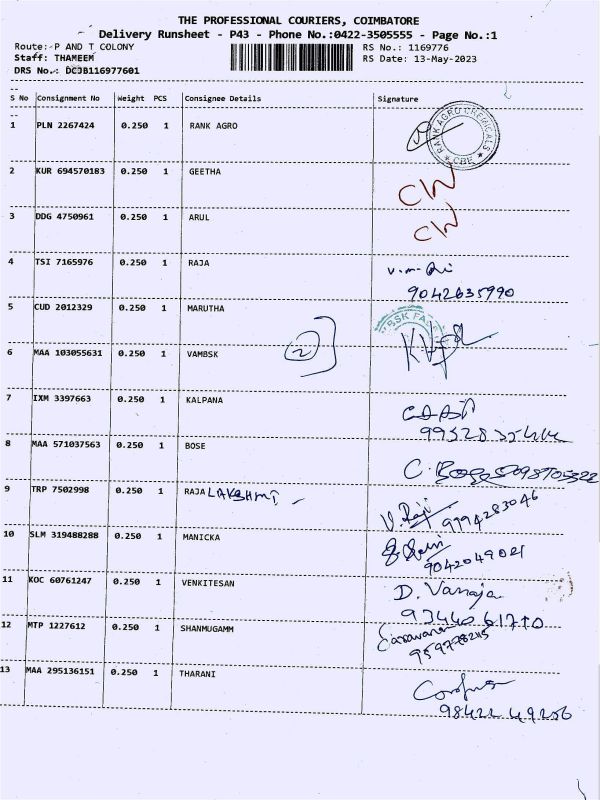 THE PROFESSIONAL COURIERS, COIMBATORE
Delivery Runsheet - P43 - Phone No.:0422-3505555 - Page No.:1
Route: P AND T COLONY RS No.: 1169776
Staff: THAMEEM RS Date: 13-May-2023
DRS No.: DCOB116977601
S No Consignment No Weight PCS Consignee Details Signature
1 PLN 2267424 0.250 1 RANK AGRO
RANK AGRO CHEMICALS CBE
2 KUR 694570183 0.250 1 GEETHA CW
3 DDG 4750961 0.250 1 ARUL CW
4 TSI 7165976 0.250 1 RAJA
9042635990
5 CUD 2012329 0.250 1 MARUTHA
BSK
6 MAA 103055631 0.250 1 VAMBSK 2
7 IXM 3397663 0.250 1 KALPANA
8 MAA 571037563 0.250 1 BOSE
C. Bose
9 TRP 7502998 0.250 1 RAJA LAKSHMI -
V. Raji 9994283046
10 SLM 319488288 0.250 1 MANICKA
9042049021
11 KOC 60761247 0.250 1 VENKITESAN D. Vanaja
9344061770
12 MTP 1227612 0.250 1 SHANMUGAMM Saravana
13 MAA 295136151 0.250 1 THARANI
98422 49256